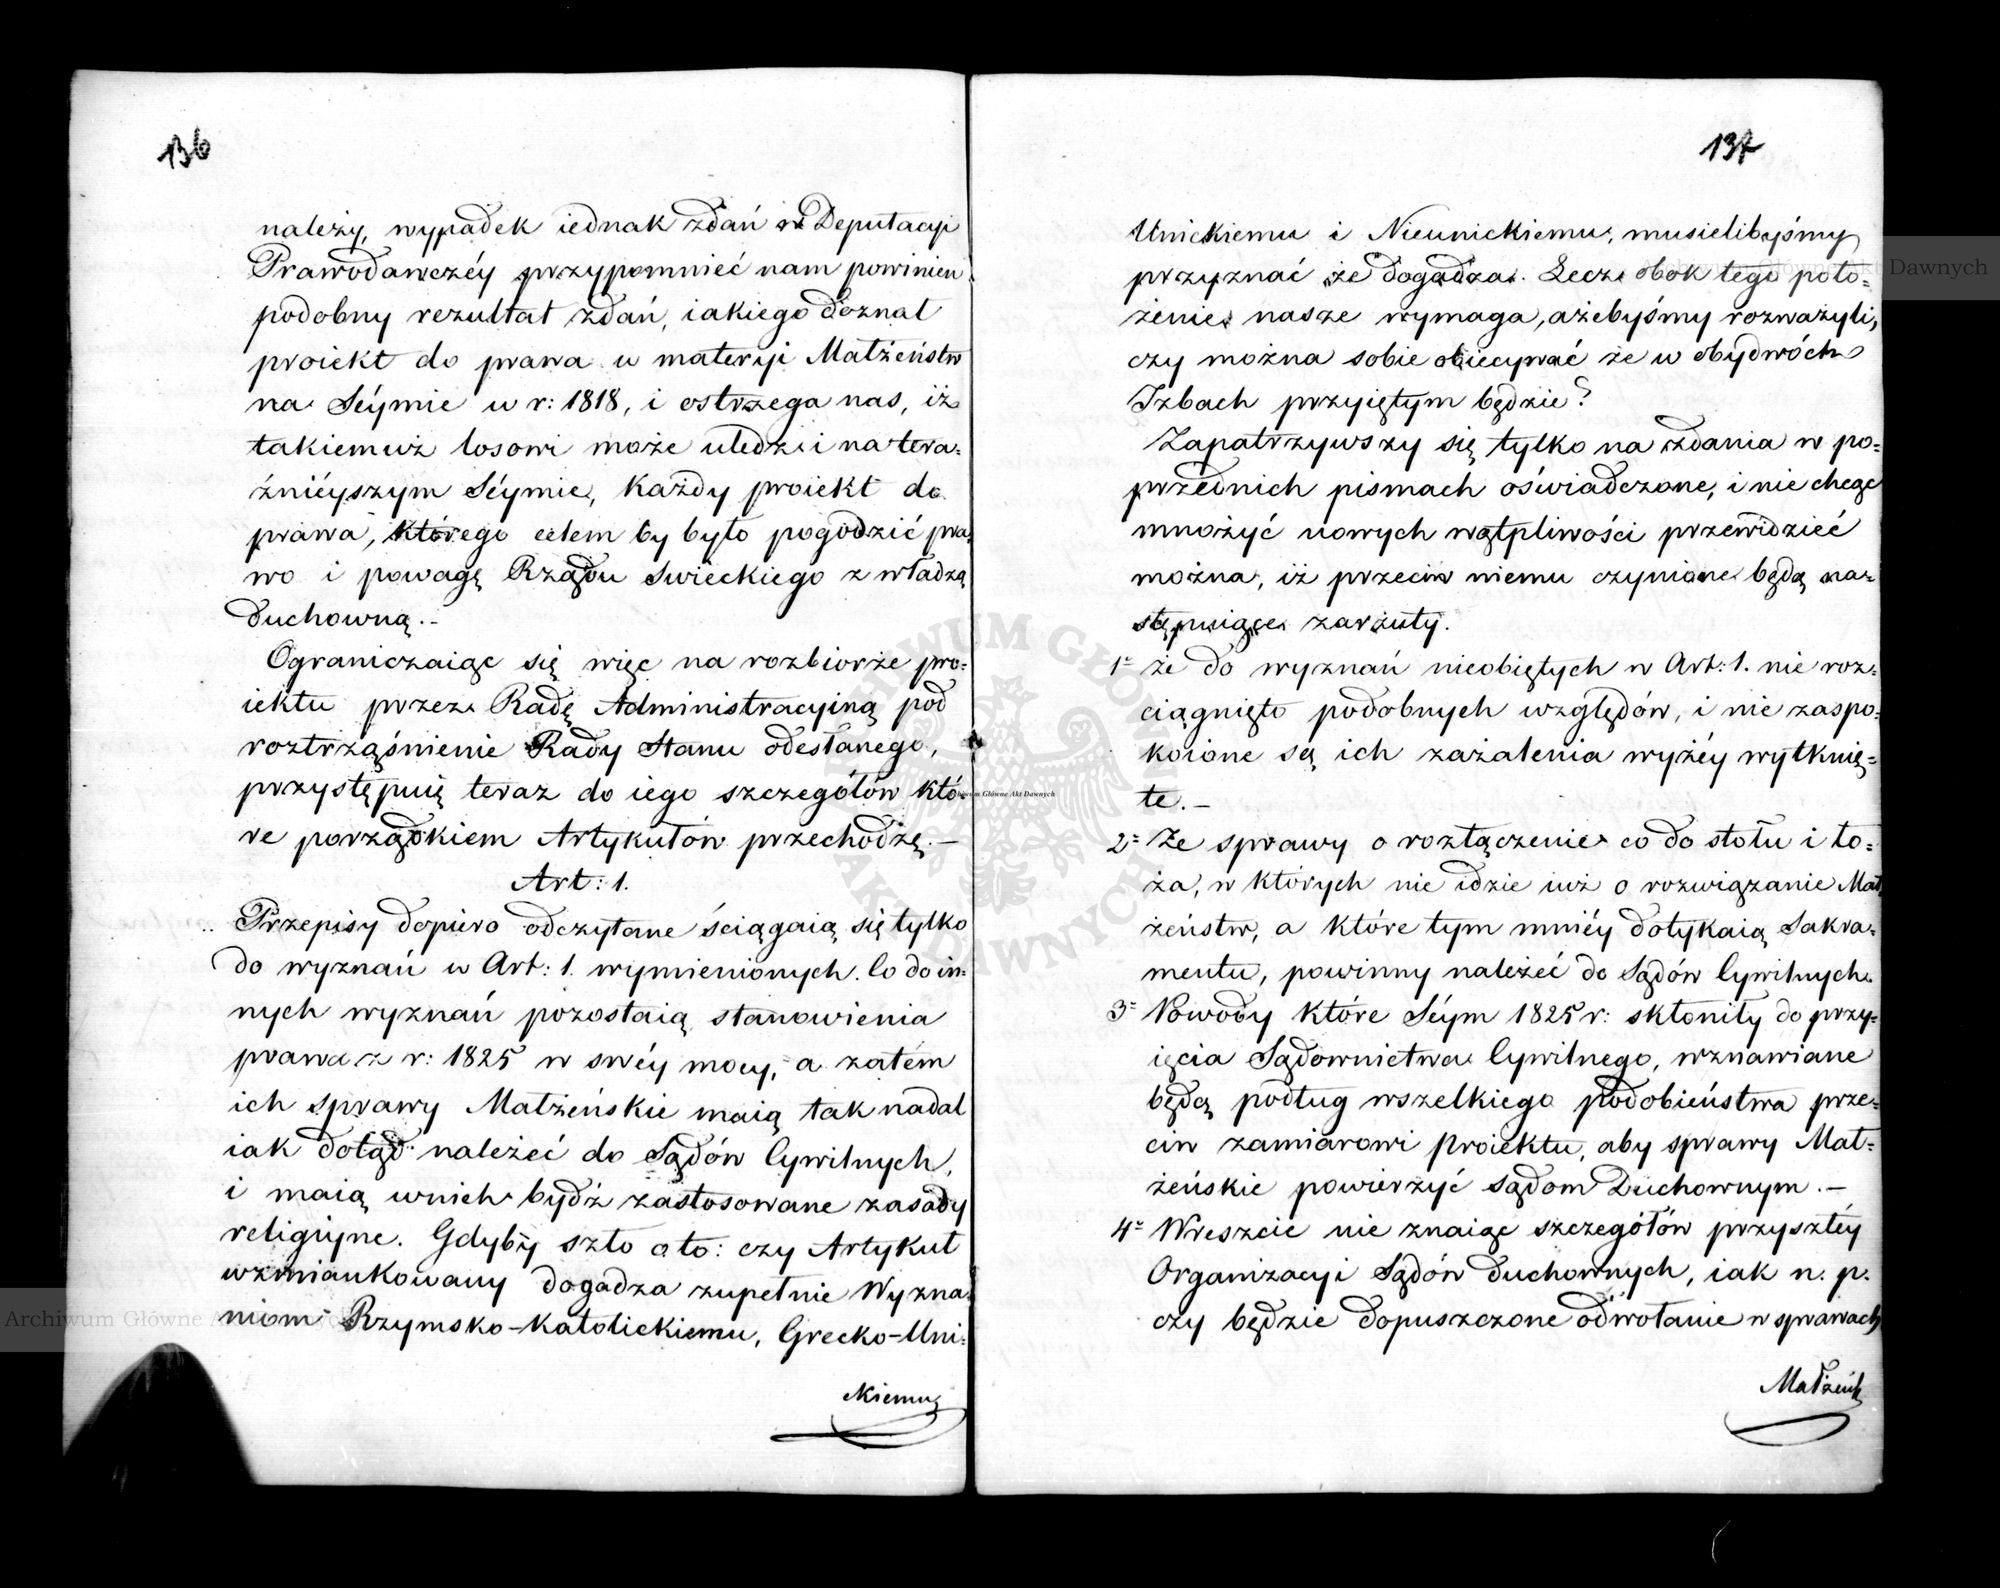 136
należy, wypadek iednak zdań w Deputacyi
Prawodawczéy przypomnieć nam powinien
podobny rezultat zdań, iakiego doznał
proiekt do prawa w materyi Małżeństw
na Séymie w r: 1818, i ostrzega nas, iż
takiemuż losowi może uledz i na tera=
źniéyszym Séymie, każdy proiekt do
prawa, którego celem by było pogodzić pra=
wo i powagę Rządu Swieckiego z władzą
duchowną.-
Ograniczaiąc się więc na rozbiorze pro=
iektu przez Radę Administracyiną pod
roztrząśnienie Rady Stanu odesłanego,
przystępuię teraz do iego szczegółów któ=
re porządkiem Artykułów przechodzę.—
Art: 1.
Przepisy dopiero odczytane ściągaią się tylko
do wyznań w Art: 1. wymienionych. Co do in=
nych wyznań pozostaią stanowienia
prawa z r: 1825 w swéy mocy, a zatém
ich sprawy Małżeńskie maią tak nadal
iak dotąd należeć do Sądów Cywilnych,
i maią w nich bydź zastosowane zasady
religiyne. Gdyby szło o to: czy Artykuł
wzmiankowany dogadza zupełnie Wyzna=
niom Rzymsko-Katolickiemu, Grecko-Uni=
ckiemu
137
Unickiemu i Nieunickiemu, musielibyśmy
przyznać że dogadza. Lecz obok tego poło=
żenie nasze wymaga, ażebyśmy rozważyli,
czy można sobie obiecywać że w obydwóch
Izbach przyiętym będzie?
Zapatrzywszy się tylko na zdania w po=
przednich pismach oświadczone, i nie chcąc
mnożyć nowych wątpliwości przewidzieć
można, iż przeciw niemu czynione będą na=
stępuiące zarzuty.
1= że do wyznań nieobiętych w Art: 1. nie roz=
ciągnięto podobnych względów, i nie zaspo=
koione są ich zażalenia wyżéy wytknię=
te.—
2= Że sprawy o rozłączenie co do stołu i ło=
ża, w których nie idzie iuż o rozwiązanie Mał=
żeństw, a które tym mniéy dotykaią Sakra=
mentu, powinny należeć do Sądów Cywilnych.
3= Powody które Séym 1825 r: skłoniły do przy=
ięcia Sądownictwa Cywilnego, wznawiane
będą podług wszelkiego podobieństwa prze=
ciw zamiarowi proiektu, aby sprawy Mał=
żeńskie powierzyć sądom Duchownym.—
4= Wreszcie nie znaiąc szczegółów przyszłéy
Organizacyi Sądów duchownych, iak n. p.
czy będzie dopuszczone odwołanie w sprawach
Małżeńs
Archiwum Główne Akt Dawnych